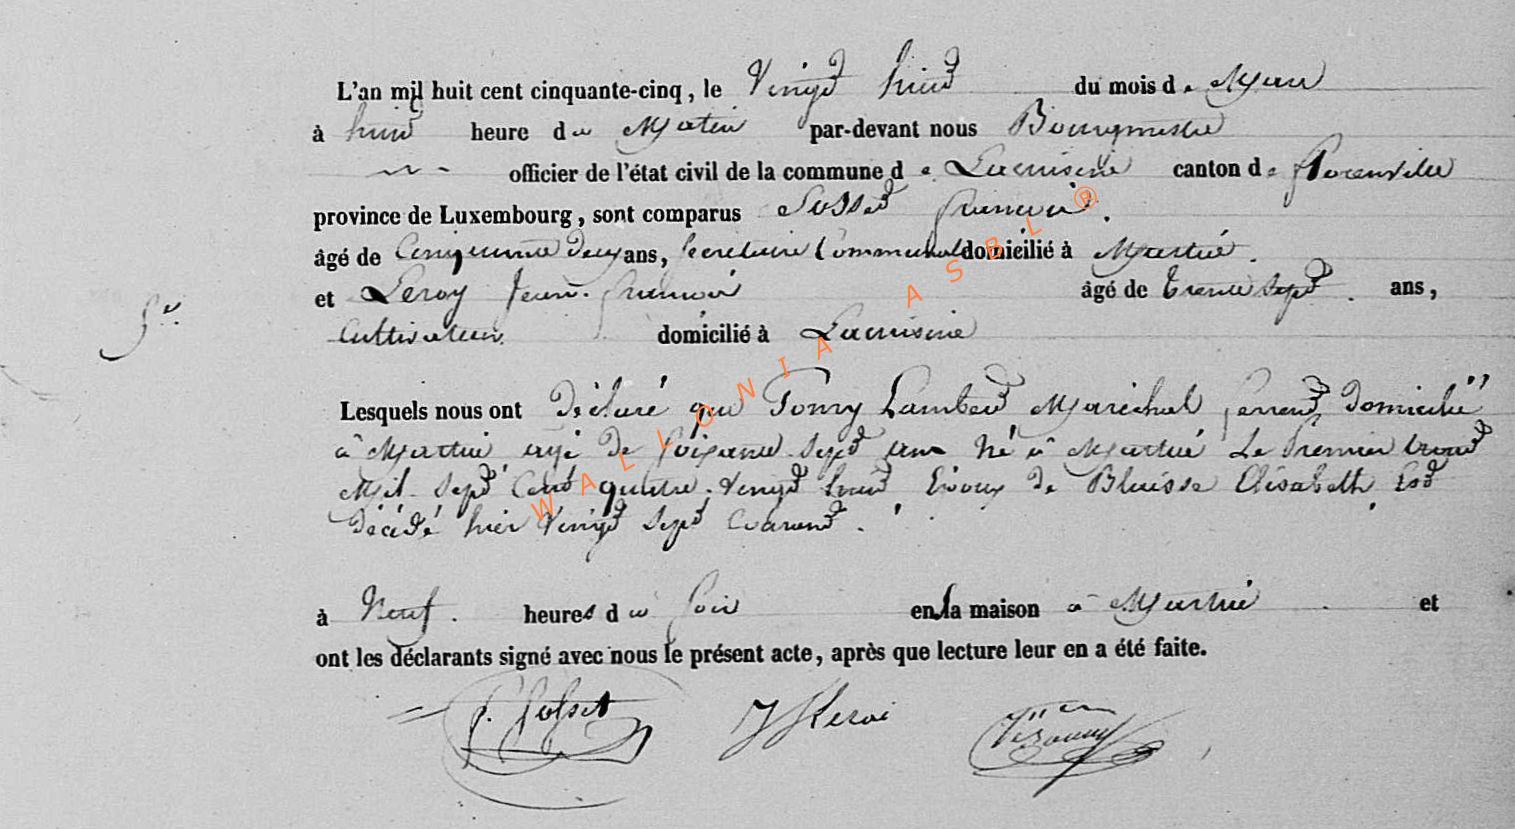 L'an mil huit cent cinquante-cinq, le Vingt huit du mois de Mars
à huit heure du Matin par-devant nous Bourgmestre
officier de l'état civil de la commune de Lacuisine canton de Florenville
province de Luxembourg, sont comparus Josset françois.
âgé de Cinquante deux ans, Secrétaire Communal domicilié à Martué.
et Leroy Jean. françois âgé de trente sept. ans,
5e.
Cultivateur domicilié à Lacuisine
Lesquels nous ont Déclaré que Tonry Lambert Maréchal ferrant, domicilié
à Martué agé de Soixante Sept ans Né à Martué Le Premier
Mil Sept Cent quatre. Vingt huit Epoux de Blaisse Elisabeth Est
Décédé hier Vingt Sept Courant.
à Neuf. heures du Soir en la maison à Martué et
ont les déclarants signé avec nous le présent acte, après que lecture leur en a été faite.
J Leroi
WALLONIA ASBL ®